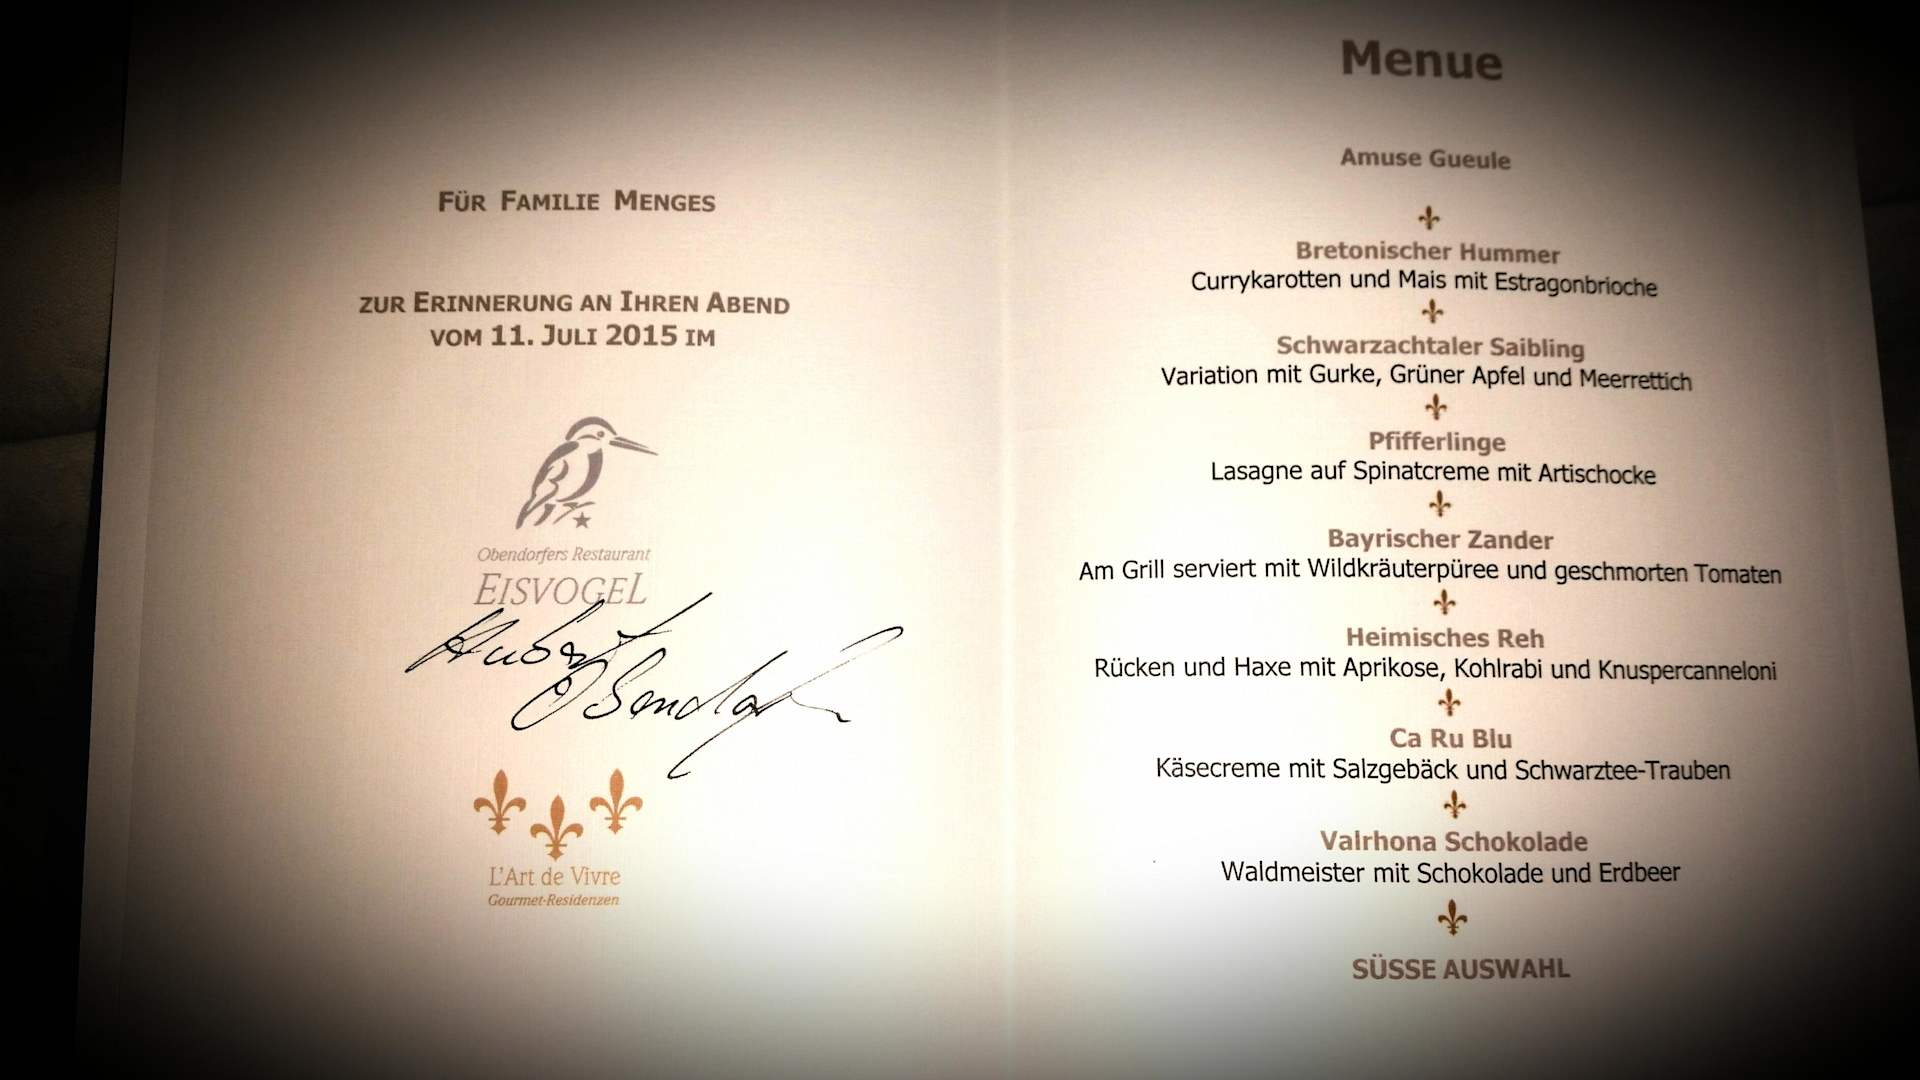 FÜR FAMILIE MENGES
ZUR ERINNERUNG AN IHREN ABEND
VOM 11. JULI 2015 IM
Obendorfers Restaurant
EISVOGEL
Hubert
Obendorfer
L'Art de Vivre
Gourmet-Residenzen
Menue
Amuse Gueule
Bretonischer Hummer
Currykarotten und Mais mit Estragonbrioche
Schwarzachtaler Saibling
Variation mit Gurke, Grüner Apfel und Meerrettich
Pfifferlinge
Lasagne auf Spinatcreme mit Artischocke
Bayrischer Zander
Am Grill serviert mit Wildkräuterpüree und geschmorten Tomaten
Heimisches Reh
Rücken und Haxe mit Aprikose, Kohlrabi und Knuspercanneloni
Ca Ru Blu
Käsecreme mit Salzgebäck und Schwarztee-Trauben
Valrhona Schokolade
Waldmeister mit Schokolade und Erdbeer
SÜSSE AUSWAHL